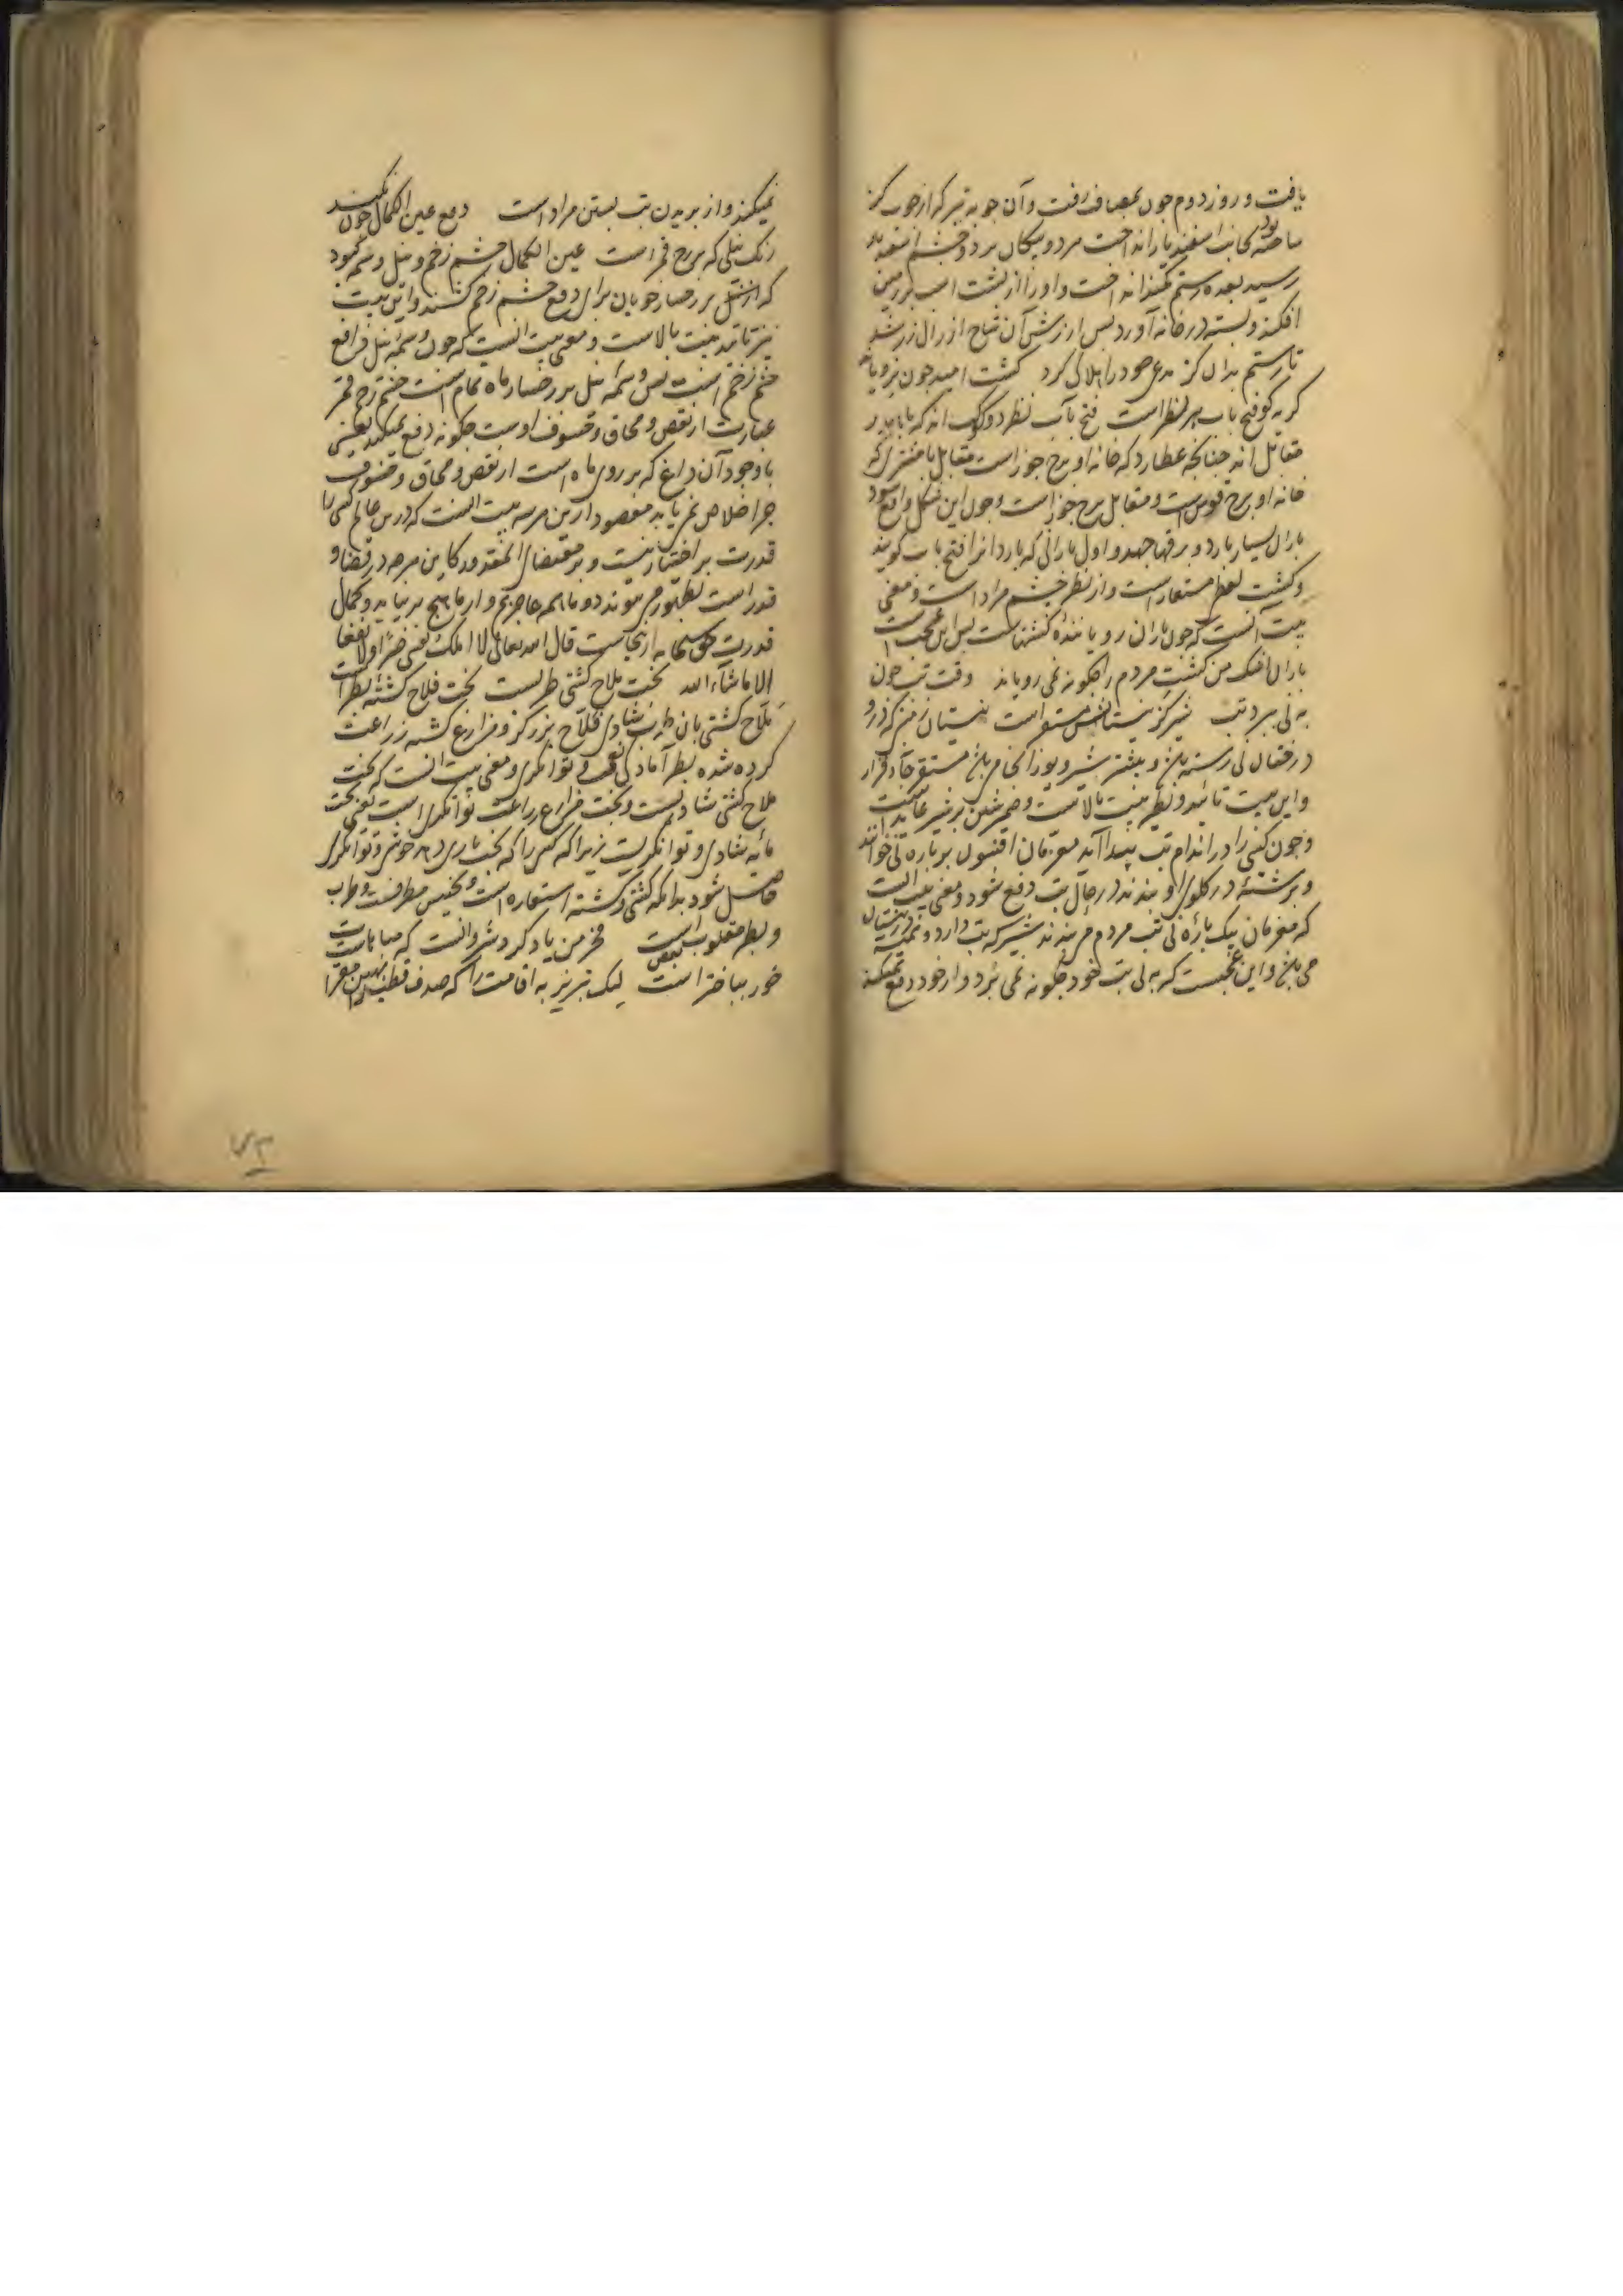 یافت و روز دوم چون بمصاف رفت و آن چوبه تیر که از چوب گز
ساخته بود بجانب اسفندیار انداخت مرد و پیکان مرد و چشم اسفندیار
رسید بعده رستم کمند انداخت و او را از پشت اسب بر زمین
افکند و بسته در خانه آورد پس ارزش آن نتاج از زال زر شد
تا رستم بدان گز مدعی خود را هلاک کرد کشت امید چون نرویاند
گریه کو فتح باب هر نظر است فتح باب نظر دو کوکب اند که با یکدیگر
مقابل اند چنانچه عطارد که خانه او برج جوزاست مقابل با مشتری که
خانه او برج قوس است و مقابل برج جوزاست و چون این شکل واقع شود
باران بسیار بارد و برقها جهد و اول بارانی که بارد آنرا فتح باب گویند
و کشت لفظ مستعار است و از نظر چشم مراد است و معنی
بیت آنست که چون باران رویاننده کشتهاست پس این عجب است
باران اشک من کشت مردم را چگونه نمی رویاند وقت تب چون
به نی نبرد تب شیر گر نیستانش مستقر است نیستان زمین که درو
درختان نی رسته باشد و بیشتر شیر و یوز آنجا می باشد مستقر جای قرار
و این بیت تائید و نظیر بیت بالاست و ضمیر شین بر شیر عاید است
و چون کسی را در اندام تب پیدا آید معزمان افسون بر پاره نی خوانند
و برشته در گلوی او بندند در حال تب دفع شود و معنی بیت آنست
که معزمان بیک پاره نی تب مردم می بندند شیر که تب دارد و همیشه در نیستان
می باشد و این عجبست که به نی تب خود چگونه نمی برد و از خود دفع نمیکند
نمیکند و از بریدن تب بستن مراد است دفع عین الکمال چون نکند
رنگ نیلی که بر رخ قمر است عین الکمال چشم زخم و نیل وسمه کبود
که از نیل بر رخسار خوبان برای دفع چشم زخم کشند و این بیت
نیز تائید بیت بالاست و معنی بیت آنست که چون وسمه نیل دافع
چشم زخم است پس وسمه نیل بر رخساره ماه تمام است چشم زخم قمر
عبارت از نقص و محاق و خسوف اوست چگونه دفع نمیکند یعنی
با وجود آن داغ که بر روی ماه است از نقص و محاق و خسوف
چرا خلاص نمی یابد مقصود ازین هر سه بیت آنست که درین عالم کسی را
قدرت بر اختیار نیست و بر مقتضای المقدور کاین هر چه در قضا و
قدر است بظهور می پیوندد و ما همه عاجزیم و از ما هیچ بر نیاید و کمال
قدرت حق سبحانه ازینجاست قال الله تعالی لا املک لنفسی ضرا و لا نفعا
الا ماشاء الله بخت ملاح کشتی طربست بخت فلاح کشته بطر است
ملاح کشتی بان طرب شادی فلاح بزرگر و مزارع کشته زراعت
کرده شده بطر آمادگی نعمت و توانگری و معنی بیت آنست که بخت
ملاح کشتی شادیست و بخت مزارع زراعت توانگری است یعنی بخت
مایه شادی و توانگریست زیرا که کسی را که بخت یاری دهد خوشی و توانگری
حاصل شود بدانکه کشتی و کشته استعاره است و تجنیس مطرفست و طرب
و بطر مقلوب بعض است فخر من یاد کرد شروان است که مباهات
خور بباختر است لیک تبریز به اقامت را که صدف قطره را بهین مقر است